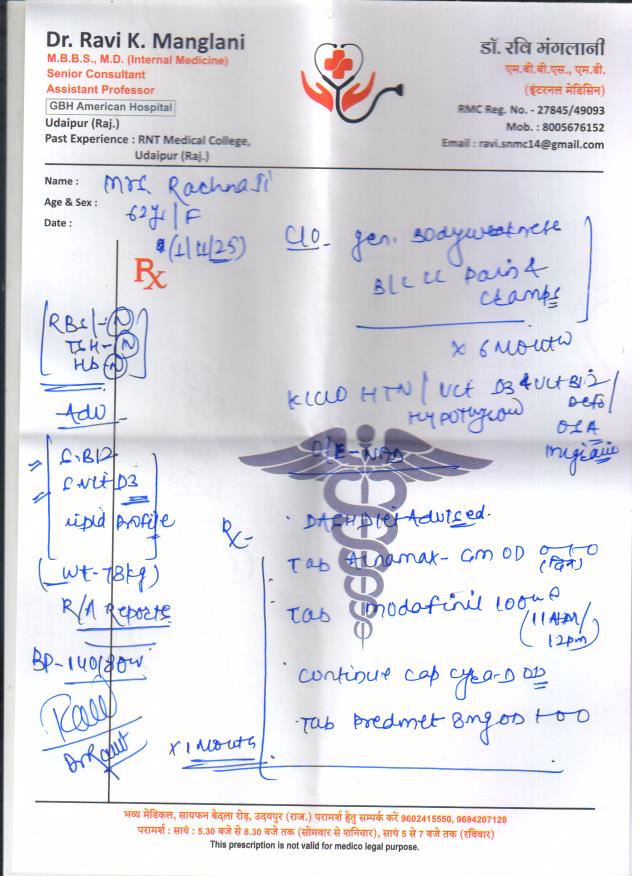 Dr. Ravi K. Manglani
M.B.B.S., M.D. (Internal Medicine)
Senior Consultant
Assistant Professor
GBH American Hospital
Udaipur (Raj.)
Past Experience : RNT Medical College,
Udaipur (Raj.)
डॉ. रवि मंगलानी
एम.बी.बी.एस., एम.डी.
(इंटरनल मेडिसिन)
RMC Reg. No. - 27845/49093
Mob. : 8005676152
Email : ravi.snmc14@gmail.com
Name : Mrs. Rachna Ji
Age & Sex : 62 yr / F
Date : (1/11/25)
Rx
C/O - gen. Bodyweakness
B/L LL Pain &
Cramps
x 6 Month
RBS - N
TSH - N
Hb - N
K/C/O HTN / Vit D3 & Vit B12
Hypothyroid
OSA
Migraine
Adv
S. B12
S. Vit D3
Lipid Profile
(Wt - 78kg)
R/A Reports
BP - 140/80
O/E - NAD
Rx -
DASH Diet Advised.
Tab GM OD 0-1-0
(दिन)
Tab Modafinil 100mg
(11 AM/
12pm)
Continue Cap D OD
Tab Predmet 8mg OD 1-0-0
x 1 Month
भव्य मेडिकल, सायफन बेदला रोड़, उदयपुर (राज.) परामर्श हेतु सम्पर्क करें 9602415550, 9694207128
परामर्श : सायं : 5.30 बजे से 8.30 बजे तक (सोमवार से शनिवार), सायं 5 से 7 बजे तक (रविवार)
This prescription is not valid for medico legal purpose.